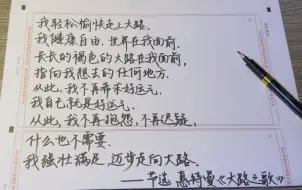 我轻松愉快走上大路，
我健康自由，世界在我面前，
长长的褐色的大路在我面前，
指向我想去的任何地方．
从此，我不再希求好运气，
我自己就是好运气．
从此，我不再抱怨，不再迟疑，
什么也不需要．
我强壮满足，迈步走向大路．
——节选 惠特曼《大路之歌》